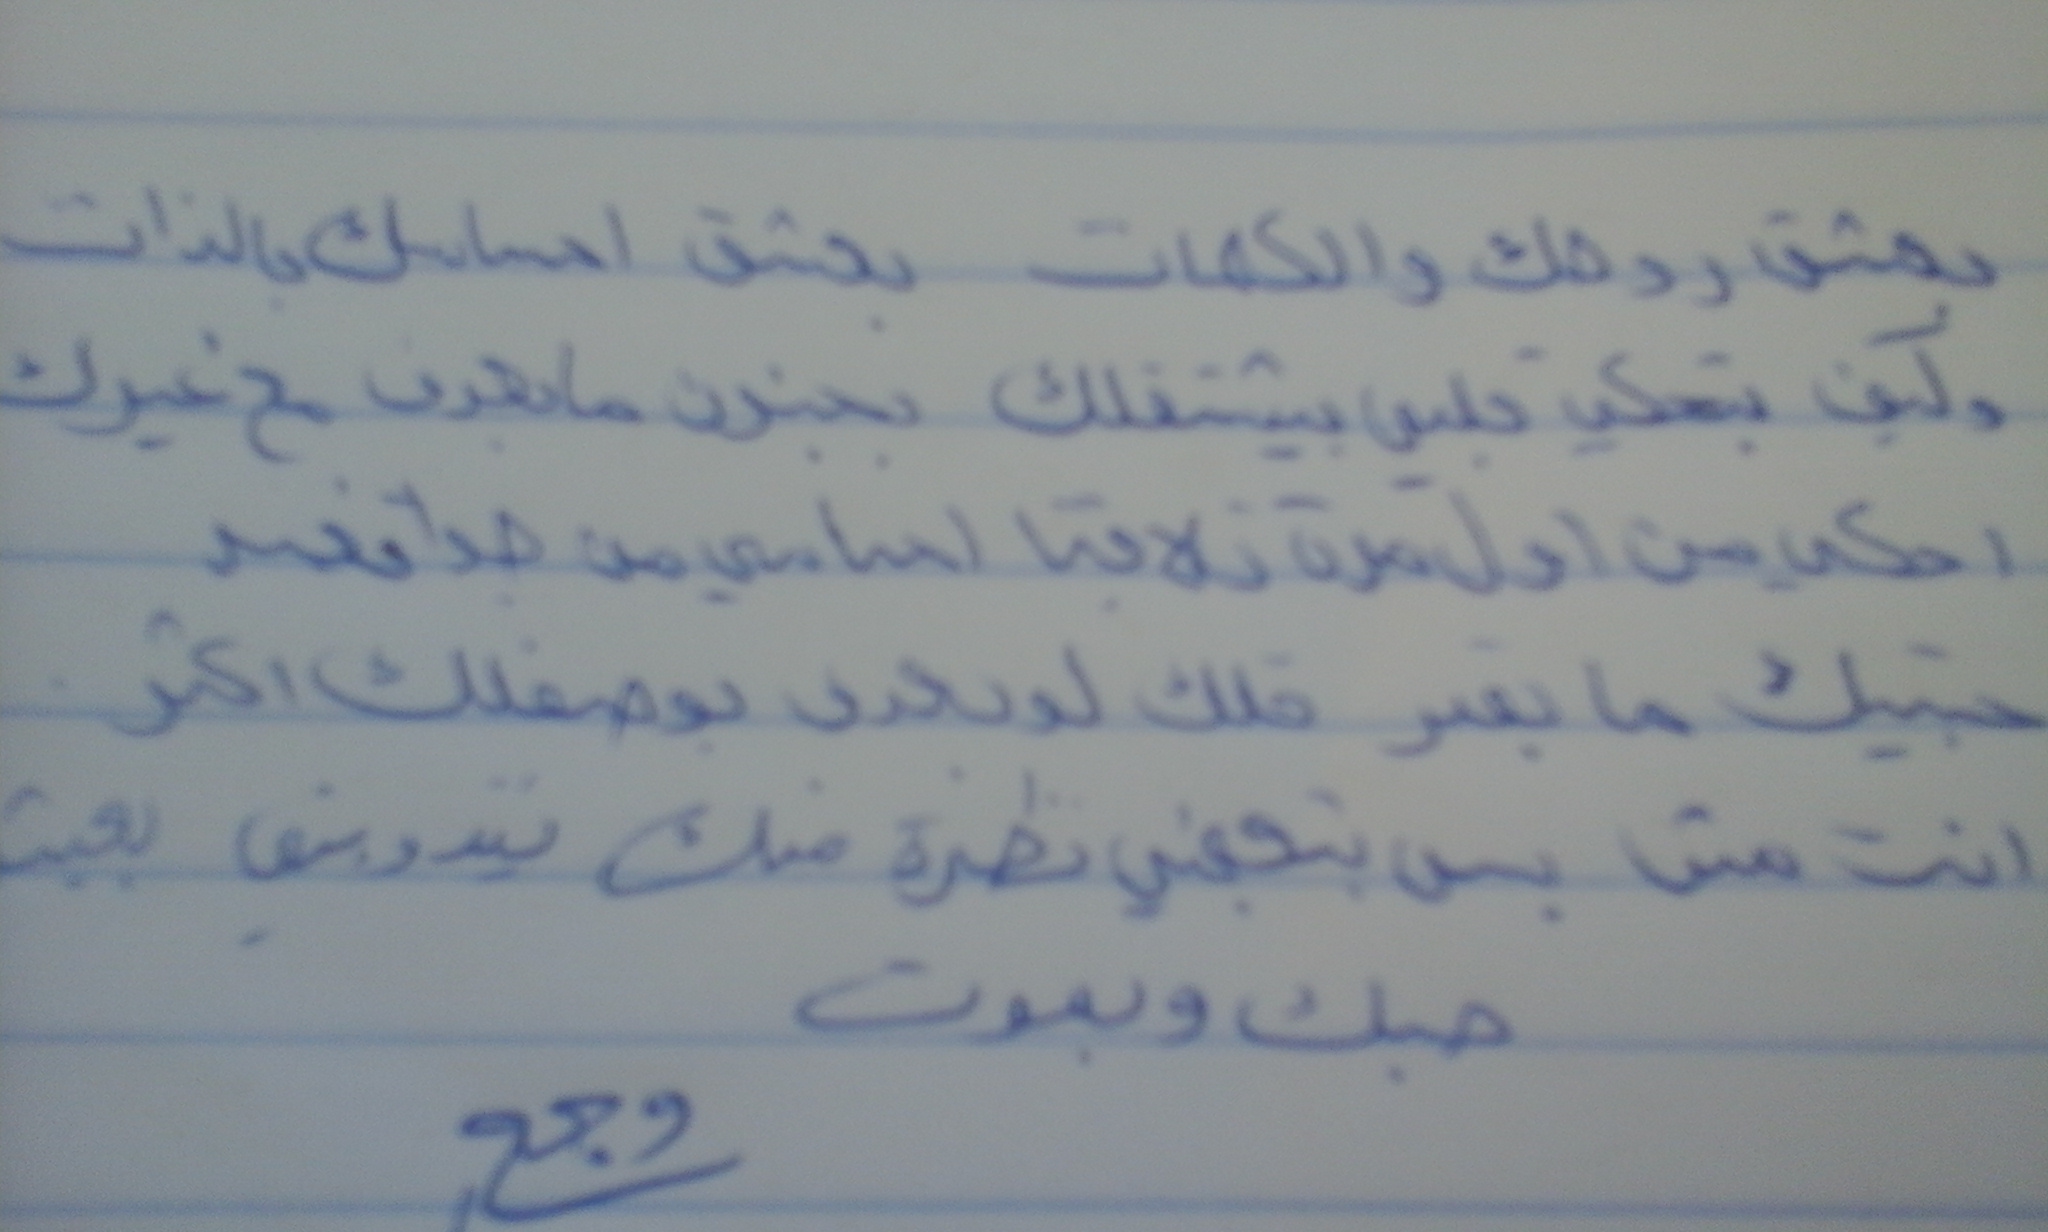 بعشق روحك والكلمات بعشق احساسك بالذات
وكيف بتحكي قلبي بيشتقلك بجنون ما بعرف مع غيرك
احكي من اول مرة تلاقينا احساسي من جوا
حبيتك ما بقدر قلك لو بعرف بوصفلك اكتر
انت مش بس بتعجني نظرة منك بعيت
حبك وبموت
وجع